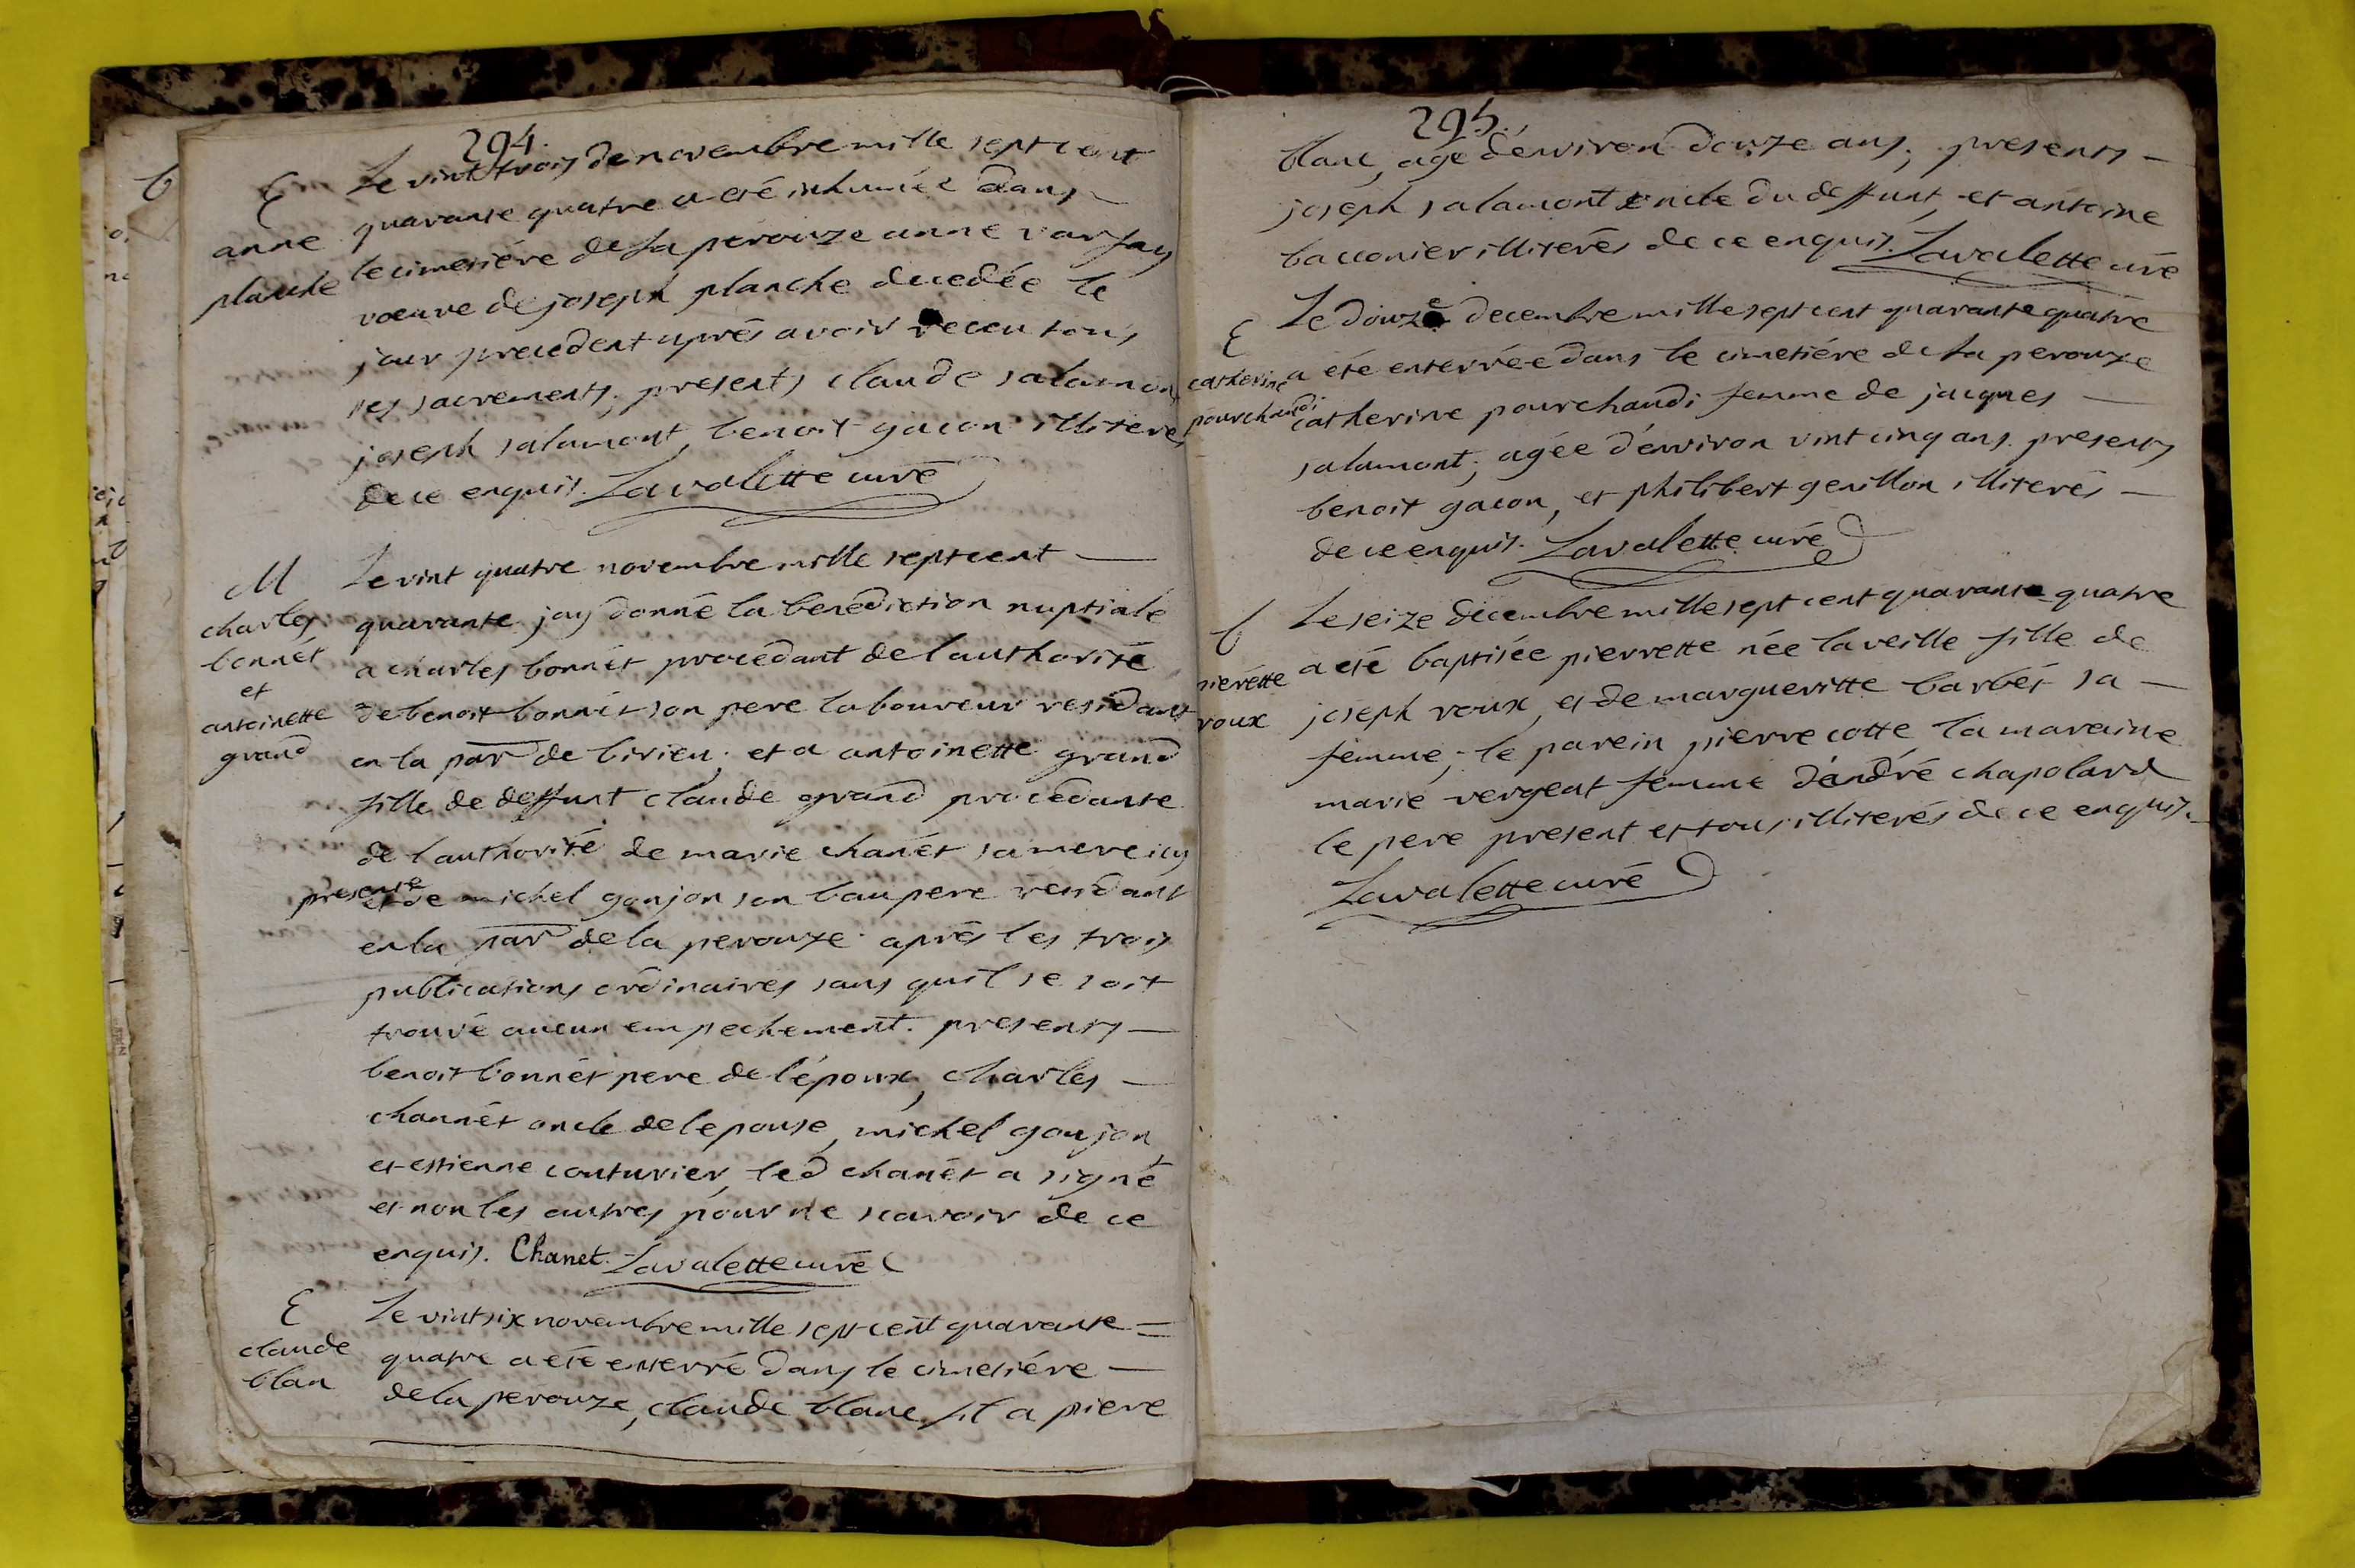 294.
E
anne
planche
Le vint trois de novembre mille sept cent
quarante quatre a eté inhumée dans
le cimetiére de la perouze anne varfay
voeuve de joseph planche decedée le
jour precedent aprés avoir receu tous
ses sacrements, presents claude salamon,
joseph salamont, benoit gacon illiteres
de ce enquis. Lavalette curé
M
charles
bonnét
et
antoinette
grand
Le vint quatre novembre mille sept cent
quarante jay donné la benediction nuptiale
a charles bonnét procédant de l authorité
de benoit bonnét son pere laboureur residant
en la par de birieu; et a antoinette grand
fille de deffunt claude grand procédante
de l authorité de marie chanét sa mere icy
presente et de michel goujon son baupere residant
en la par de la perouze aprés les trois
publications ordinaires sans quil se soit
trouvé aucun empechement. presents
benoit bonnét pere de l'époux, charles
channét oncle de lepouse, michel goujon
et estienne couturier, led chanét a signé
et non les autres pour ne scavoir de ce
enquis. Chanet. Lavalette curé
E
claude
blan
Le vint six novembre mille sept cent quarante =
quatre a eté enterré dans le cimetiére
de la perouze, claude blanc fil a piere
295.
blanc, agé d'environ douze ans, presents
joseph salamont oncle du deffunt, et antoine
bacconier illiterés de ce enquis. Lavalette curé
E
catherine
pourchaudi
Le douze decembre mille sept cent quarante quatre
a eté enterrée dans le cimetiére de la perouze
catherine pourchaudi femme de jacques
salamont, agée d'environ vint cinq ans. presents
benoit gacon, et philibert genillon illiterés
de ce enquis. Lavalette curé
b
pierétte
roux
Le seize decembre mille sept cent quarante quatre
a eté baptisée pierrette née la veille fille de
joseph roux, et de margueritte barbét sa
femme, le parein pierre cotte, la maraine
marie vergeat femme d'andré chapolard
le pere present et tous illiterés de ce enquis.
Lavalette curé